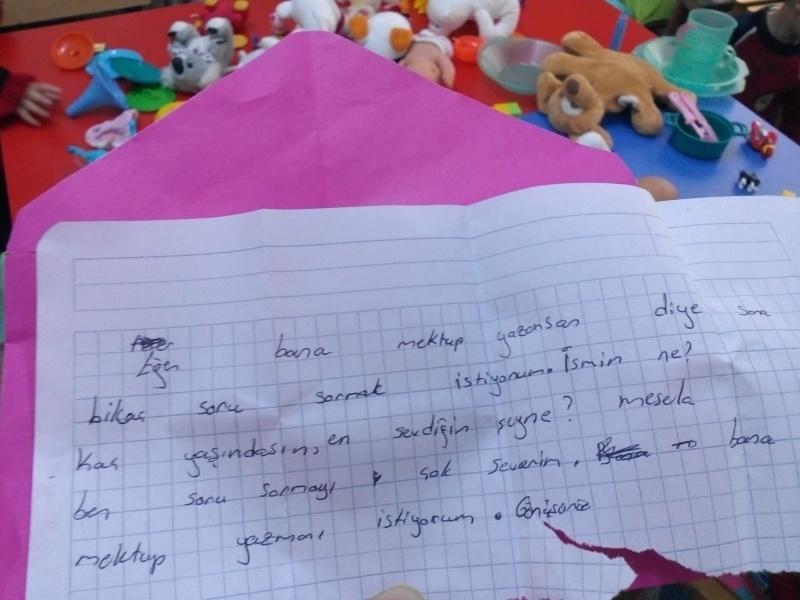 Eğer bana mektup yazarsan diye sana
bikaç soru sormak istiyorum. İsmin ne?
Kaç yaşındasın, en sevdiğin şeyne? mesela
ben soru sormayı çok severim. bana
mektup yazmanı istiyorum. Görüşürüz